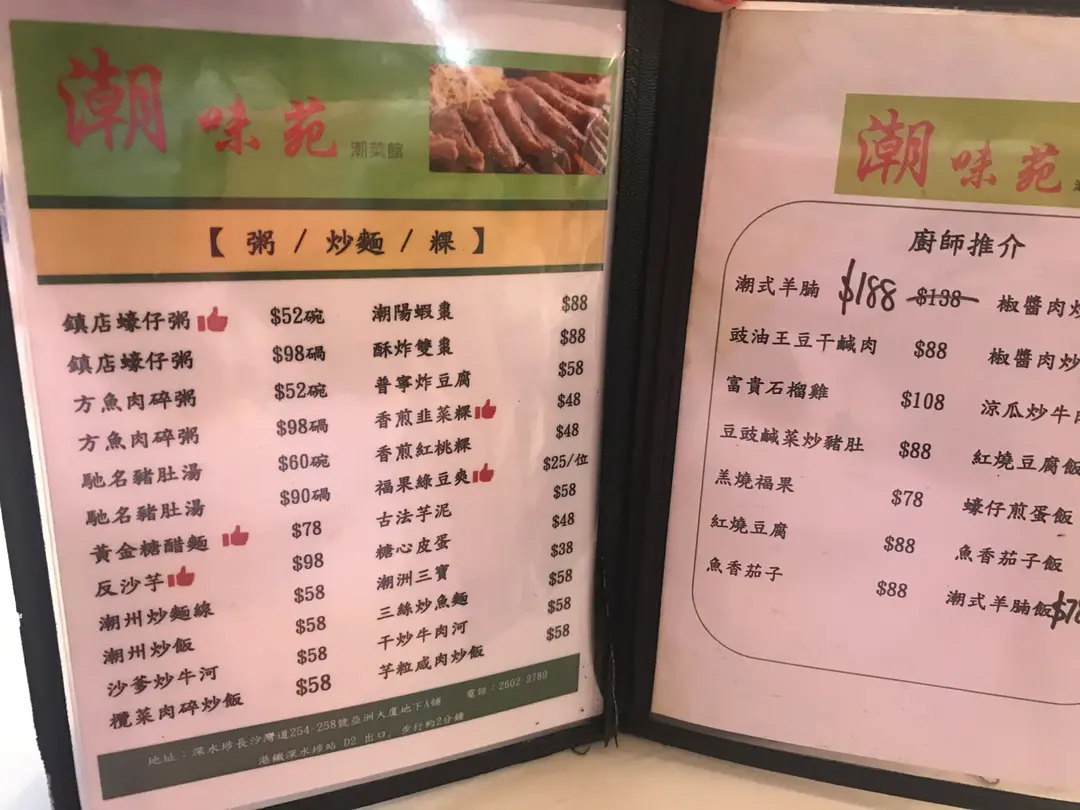 潮味苑 潮菜館
【 粥 / 炒麵 / 粿 】
鎮店蠔仔粥 $52碗
鎮店蠔仔粥 $98碢
方魚肉碎粥 $52碗
方魚肉碎粥 $98碢
馳名豬肚湯 $60碗
馳名豬肚湯 $90碢
黃金糖醋麵 $78
反沙芋 $98
潮州炒麵線 $58
潮州炒飯 $58
沙爹炒牛河 $58
欖菜肉碎炒飯 $58
潮陽蝦棗 $88
酥炸雙棗 $88
普寧炸豆腐 $58
香煎韭菜粿 $48
香煎紅桃粿 $48
福果綠豆爽 $25/位
古法芋泥 $58
糖心皮蛋 $48
潮洲三寶 $38
三絲炒魚麵 $58
干炒牛肉河 $58
芋粒咸肉炒飯 $58
地址：深水埗長沙灣道254-258號亞洲大廈地下A舖 電話：2602 2780
港鐵深水埗站 D2 出口，步行約2分鐘
潮味苑
廚師推介
潮式羊腩 $188 $138
豉油王豆干鹹肉 $88
富貴石榴雞 $108
豆豉鹹菜炒豬肚 $88
羔燒福果 $78
紅燒豆腐 $88
魚香茄子 $88
椒醬肉炒
椒醬肉炒
涼瓜炒牛肉
紅燒豆腐飯
蠔仔煎蛋飯
魚香茄子飯
潮式羊腩飯